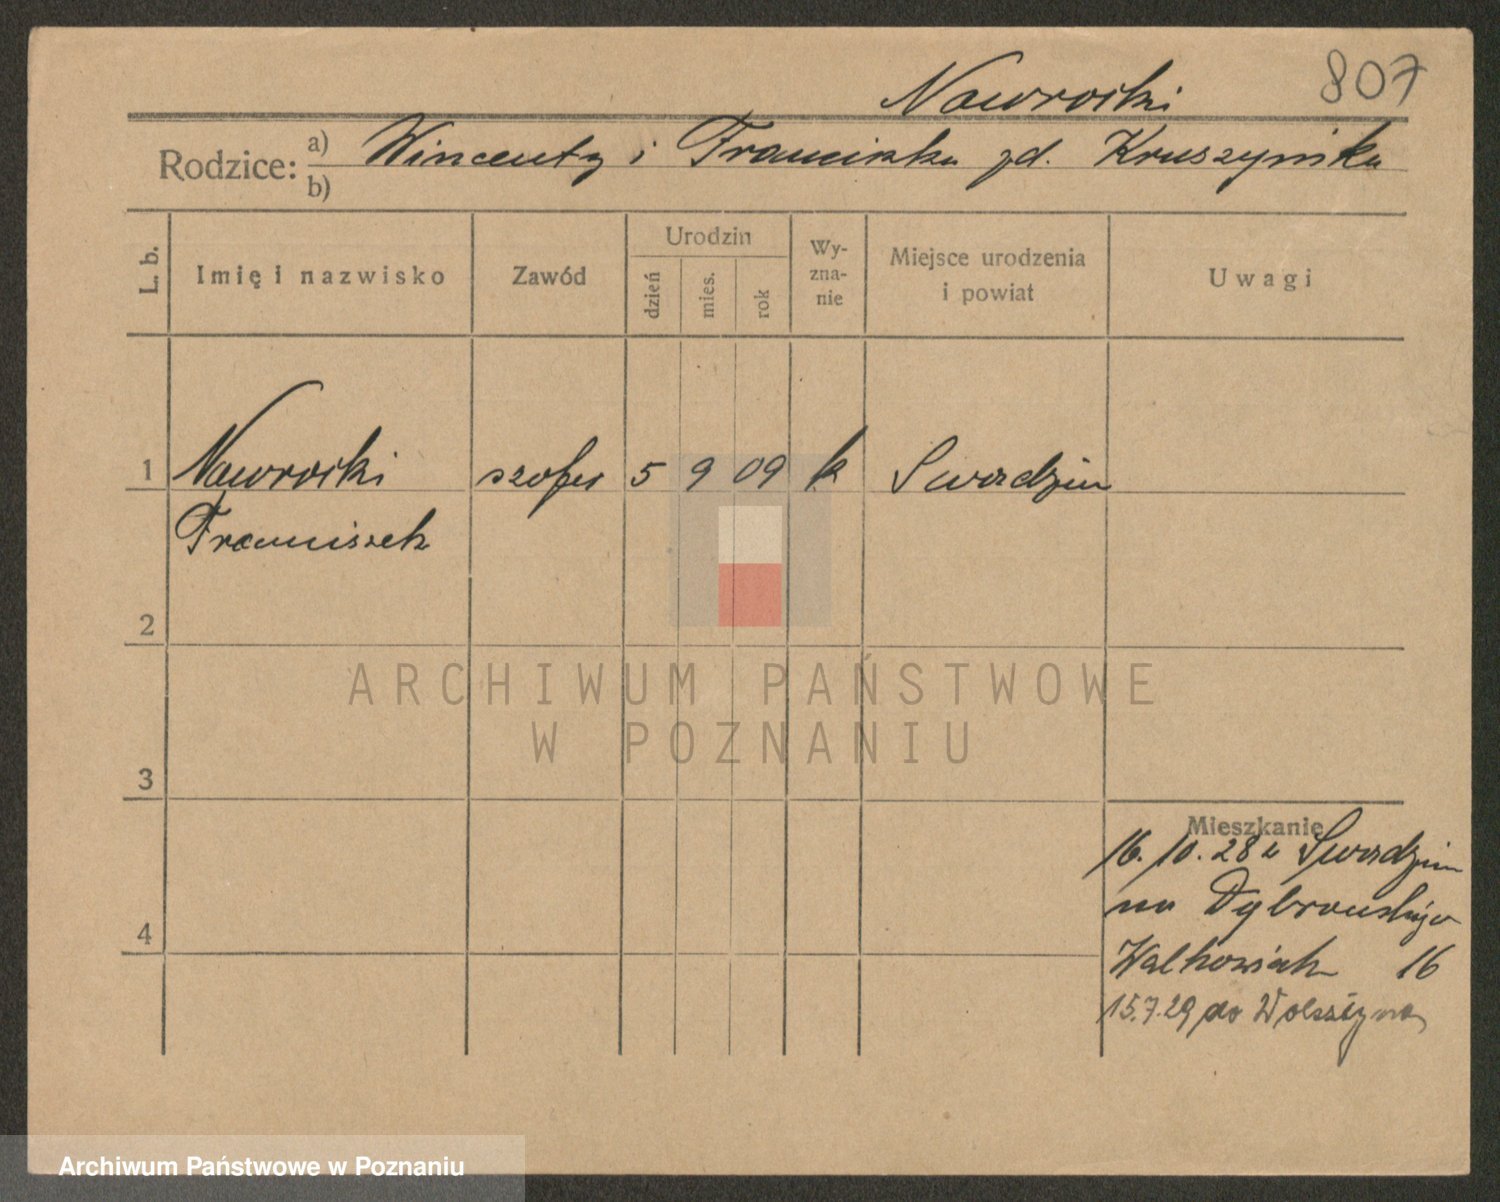 807
Nawrocki
Rodzice: a) Wincenty i Franciszka zd. Kruszynika
b)
L. b.
Imię i nazwisko
Zawód
Urodzin
dzień
mies.
rok
Wy-
zna-
nie
Miejsce urodzenia
i powiat
Uwagi
1 Nawrocki szofer 5 9 09 k Swardzim
Franciszek
2
3
4
Mieszkanie
16. 10. 28 z Swardzim
na Dąbrowskiego
Walkowiak 16
15.7.29 do Wolsztyna
ARCHIWUM PAŃSTWOWE
W POZNANIU
Archiwum Państwowe w Poznaniu